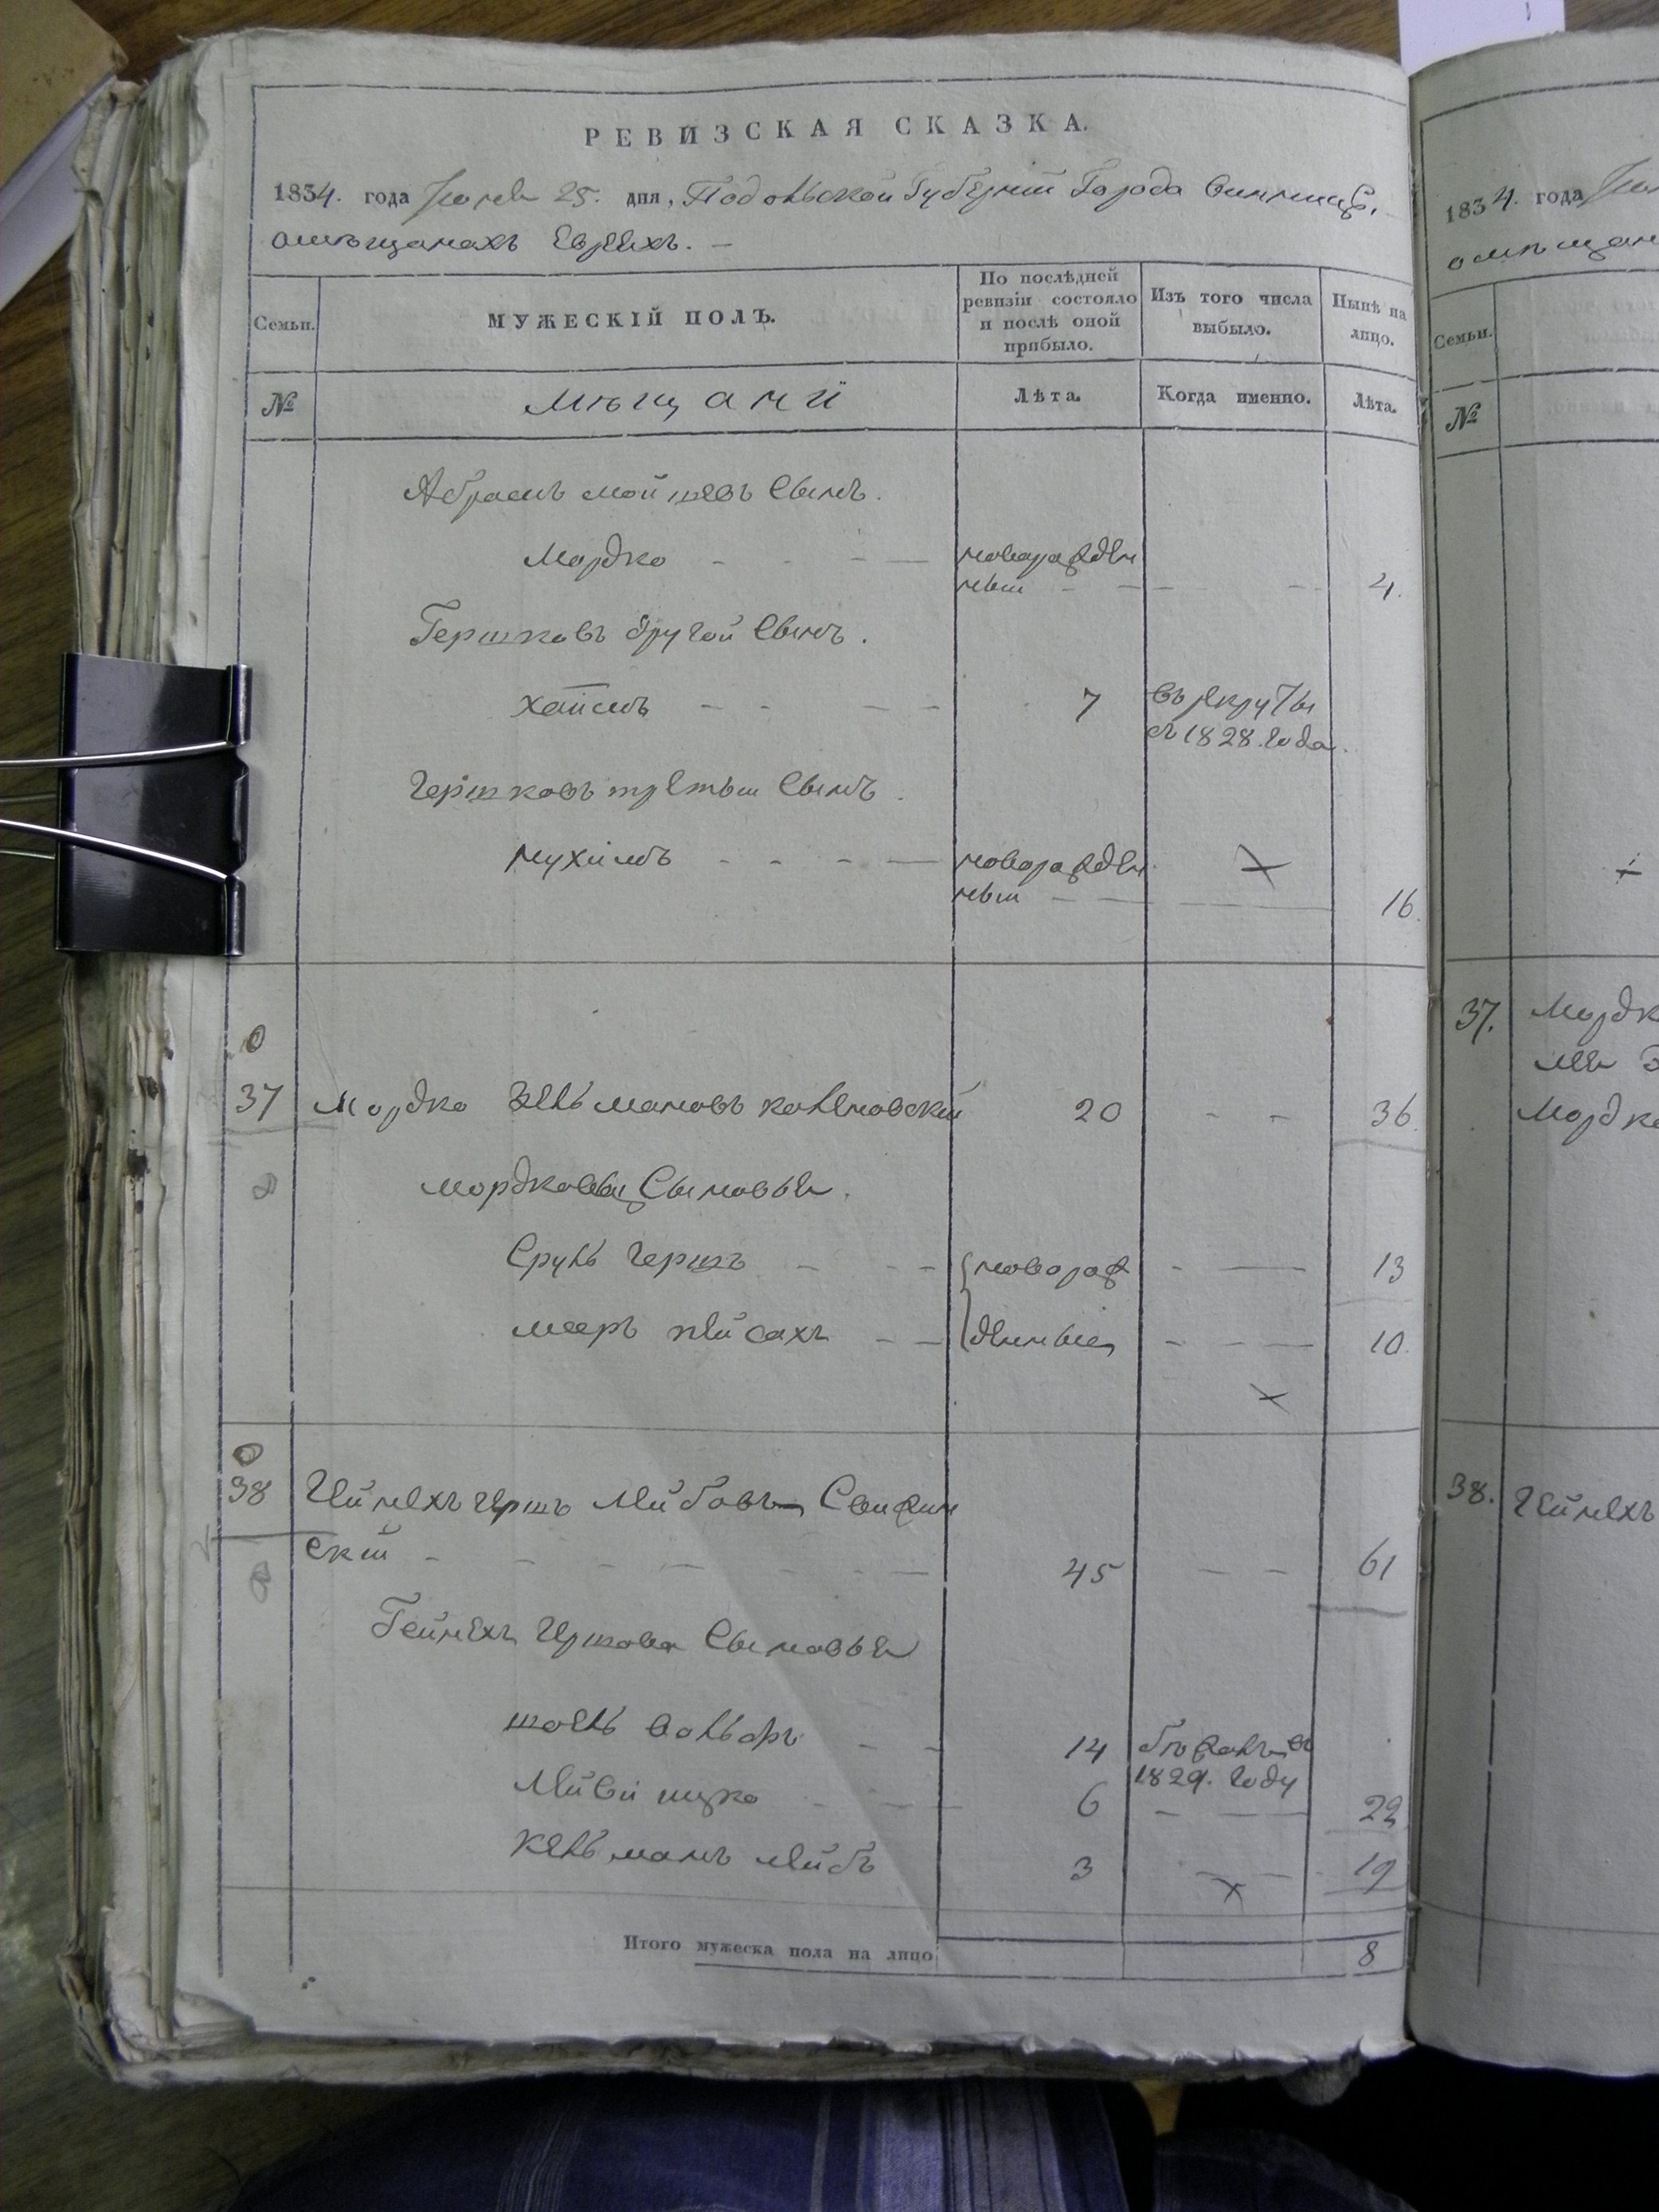 РЕВИЗСКАЯ СКАЗКА.
1834. года 25. дня, Подольской Губернiи Города Винницѣ,
омѣщанахъ Евреяхъ. —
Семьи.
МУЖЕСКIЙ ПОЛЪ.
По послѣдней ревизiи состояло и послѣ оной прибыло.
Изъ того числа выбыло.
Нынѣ на лицо.
№
мѣщани
Лѣта.
Когда именно.
Лѣта.
Абрамъ мойшевъ Сынъ.
Мордко - - - — новорожден
ный - — — - 4.
Гершковъ другой Сынъ.
хаимъ - - — - 7 въ рекруты
съ 1828. года.
Гершковъ третьи Сынъ.
Нухимъ - - - — новорожден
ный — — — 16.
37 Мордко Зельмановъ 20 - - 36.
мордковы Сыновья.
Сруль Гершъ - - - новорож - — 13
мееръ пейсахъ - — денные - - — 10.
38 Гейнехъ Гершъ Лейбовъ
скiй - - - — - - — 45 - - 61
Гейнехъ Гершкова Сыновья
14
1829. году
6 - — 22
Кельманъ Лейбъ 3 - — 19
Итого мужеска пола на лицо 8
1834. года
омѣщан
Семьи.
№
37. Мордк
Мордко
38. Гейнехъ